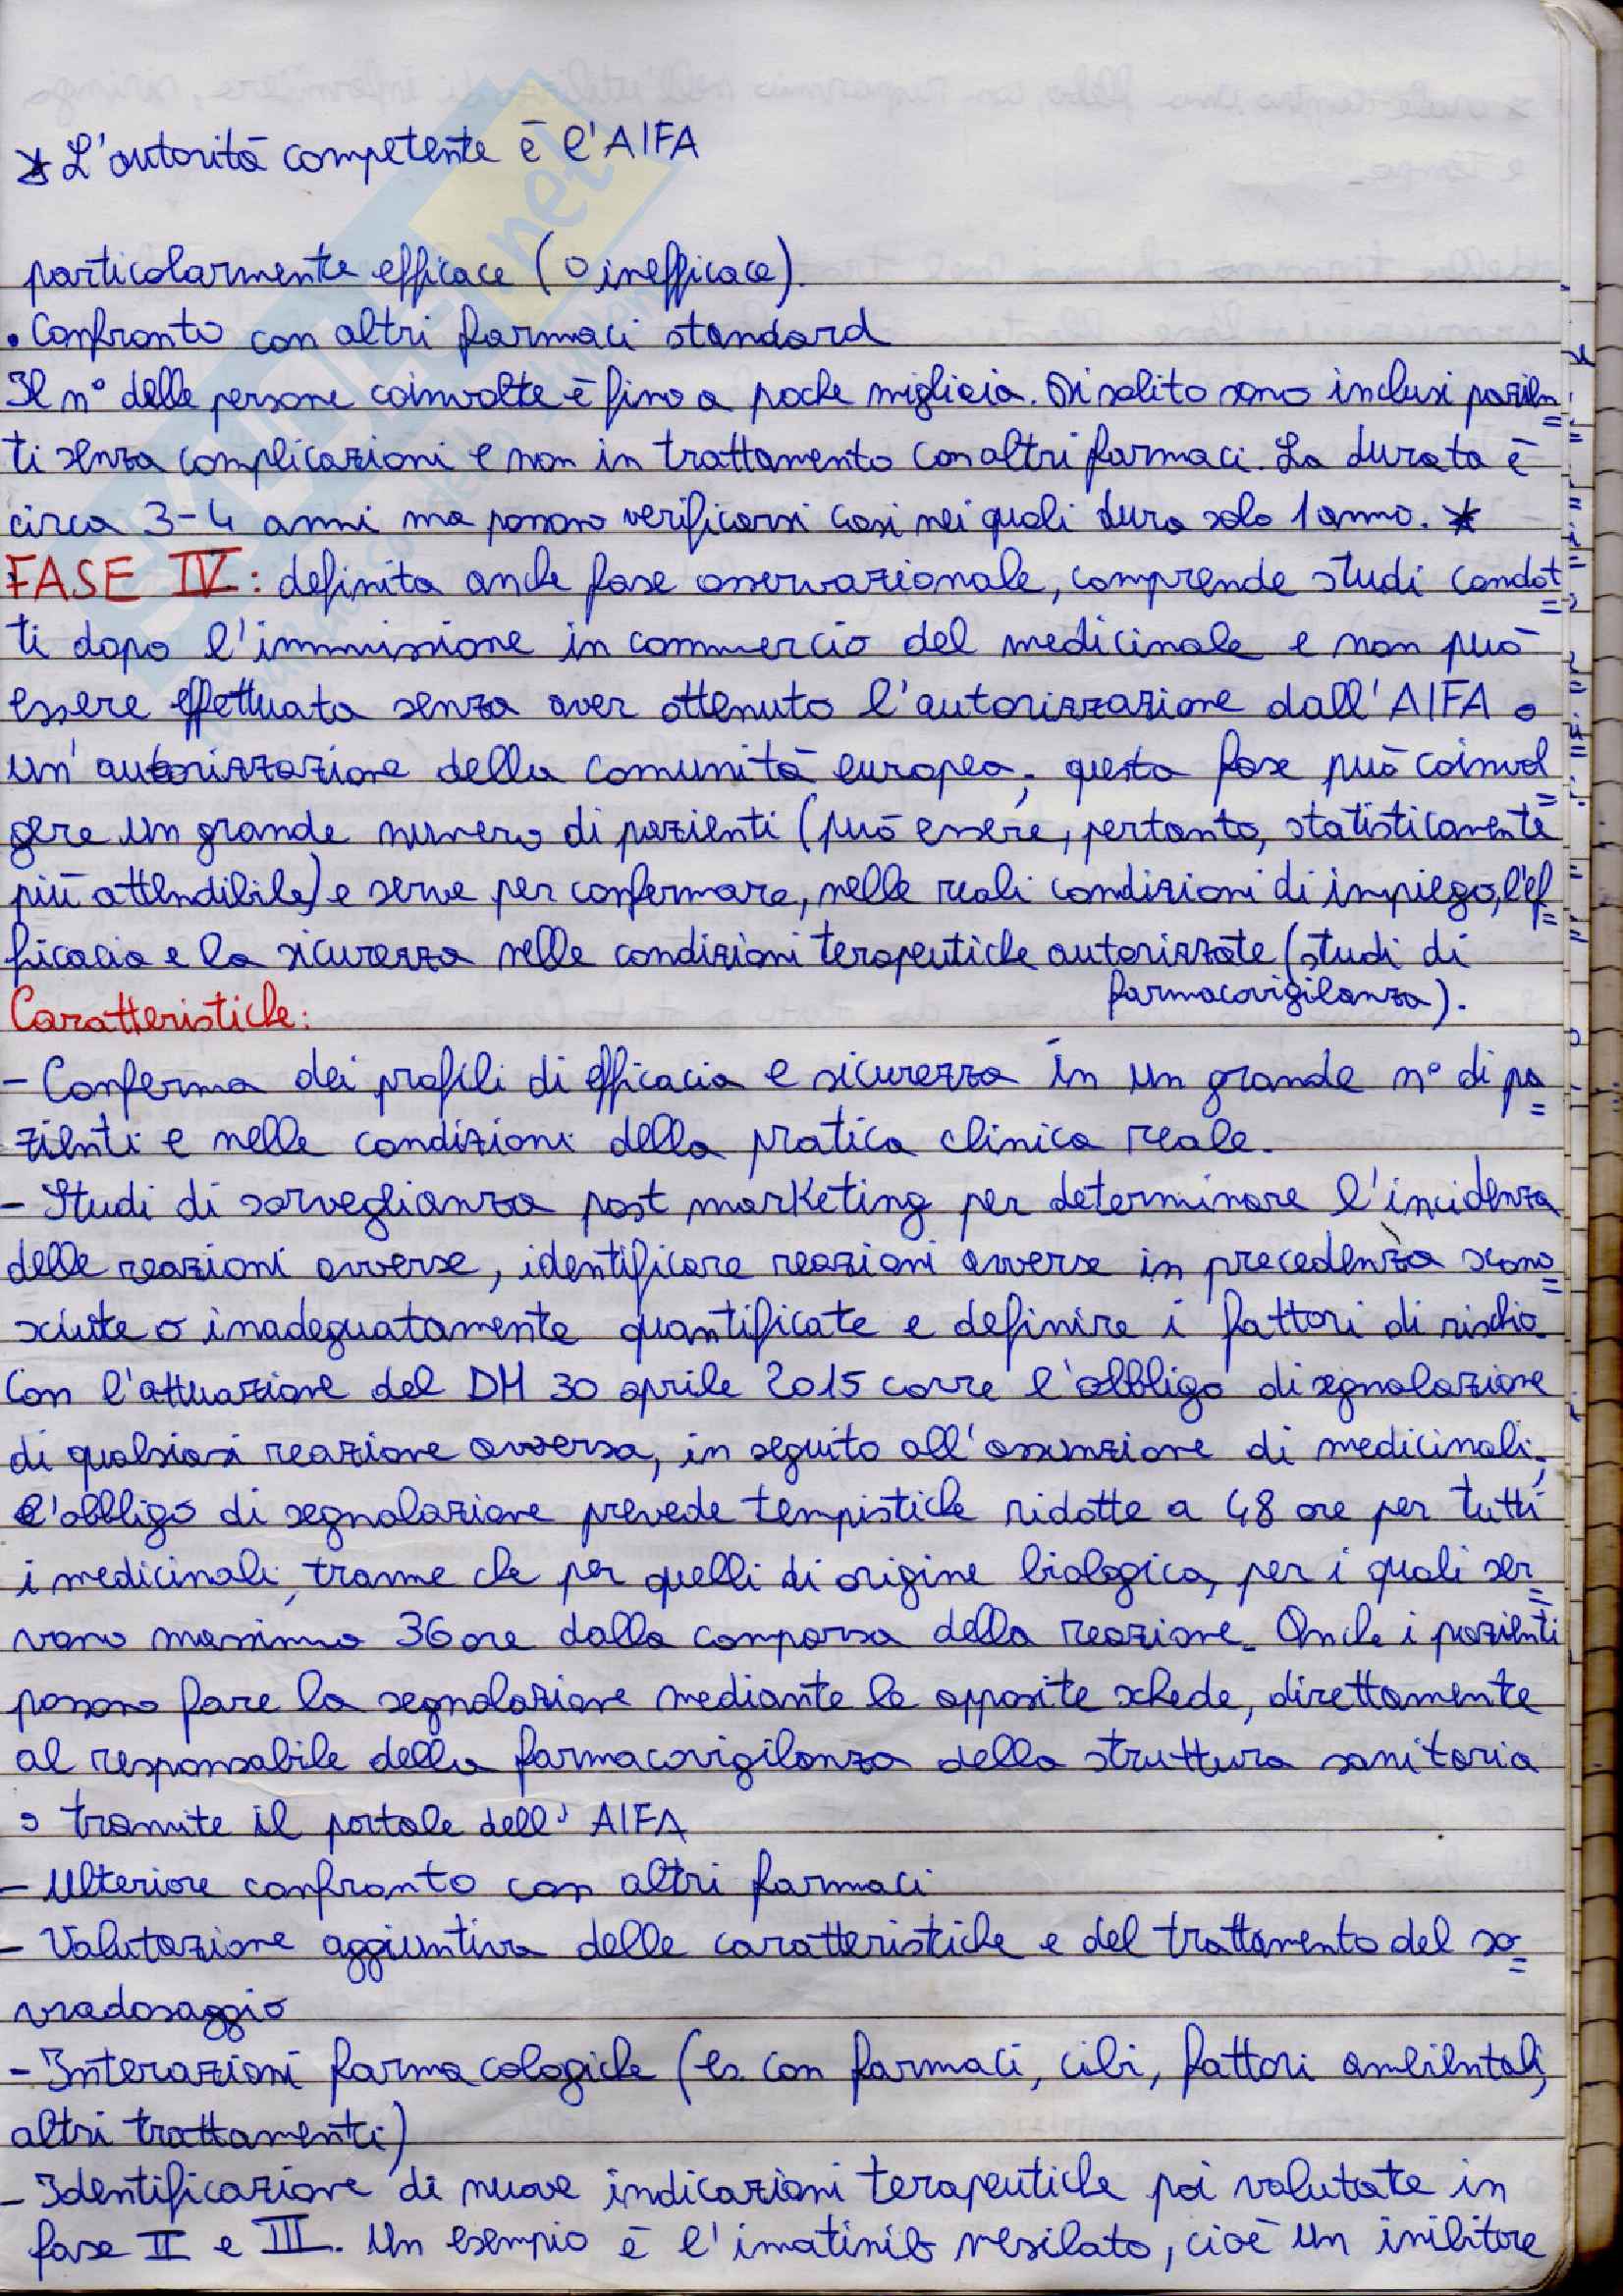 * L'autorità competente è l'AIFA
particolarmente efficace (o inefficace).
• Confronto con altri farmaci standard
Il n° delle persone coinvolte è fino a poche migliaia. Di solito sono inclusi pazien=
ti senza complicazioni e non in trattamento con altri farmaci. La durata è
circa 3-4 anni ma possono verificarsi casi nei quali dura solo 1 anno. *
FASE IV: definita anche fase osservazionale, comprende studi condot=
ti dopo l'immissione in commercio del medicinale e non può
essere effettuata senza aver ottenuto l'autorizzazione dall'AIFA o
un'autorizzazione della comunità europea; questa fase può coinvol=
gere un grande numero di pazienti (può essere, pertanto, statisticamente
più attendibile) e serve per confermare, nelle reali condizioni di impiego, l'ef=
ficacia e la sicurezza nelle condizioni terapeutiche autorizzate (studi di
farmacovigilanza).
Caratteristiche:
- Conferma dei profili di efficacia e sicurezza in un grande n° di pa=
zienti e nelle condizioni della pratica clinica reale.
- Studi di sorveglianza post marketing per determinare l'incidenza
delle reazioni avverse, identificare reazioni avverse in precedenza scono=
sciute o inadeguatamente quantificate e definire i fattori di rischio.
Con l'attuazione del DM 30 aprile 2015 corre l'obbligo di segnalazione
di qualsiasi reazione avversa, in seguito all'assunzione di medicinali;
l'obbligo di segnalazione prevede tempistiche ridotte a 48 ore per tutti
i medicinali, tranne che per quelli di origine biologica, per i quali ser=
vono massimo 36 ore dalla comparsa della reazione. Anche i pazienti
possono fare la segnalazione mediante le apposite schede, direttamente
al responsabile della farmacovigilanza della struttura sanitaria
o tramite il portale dell'AIFA
- Ulteriore confronto con altri farmaci
- Valutazione aggiuntiva delle caratteristiche e del trattamento del so=
vradosaggio
- Interazioni farmacologiche (es. con farmaci, cibi, fattori ambientali,
altri trattamenti)
- Identificazione di nuove indicazioni terapeutiche poi valutate in
fase II e III. Un esempio è l'imatinib mesilato, cioè un inibitore